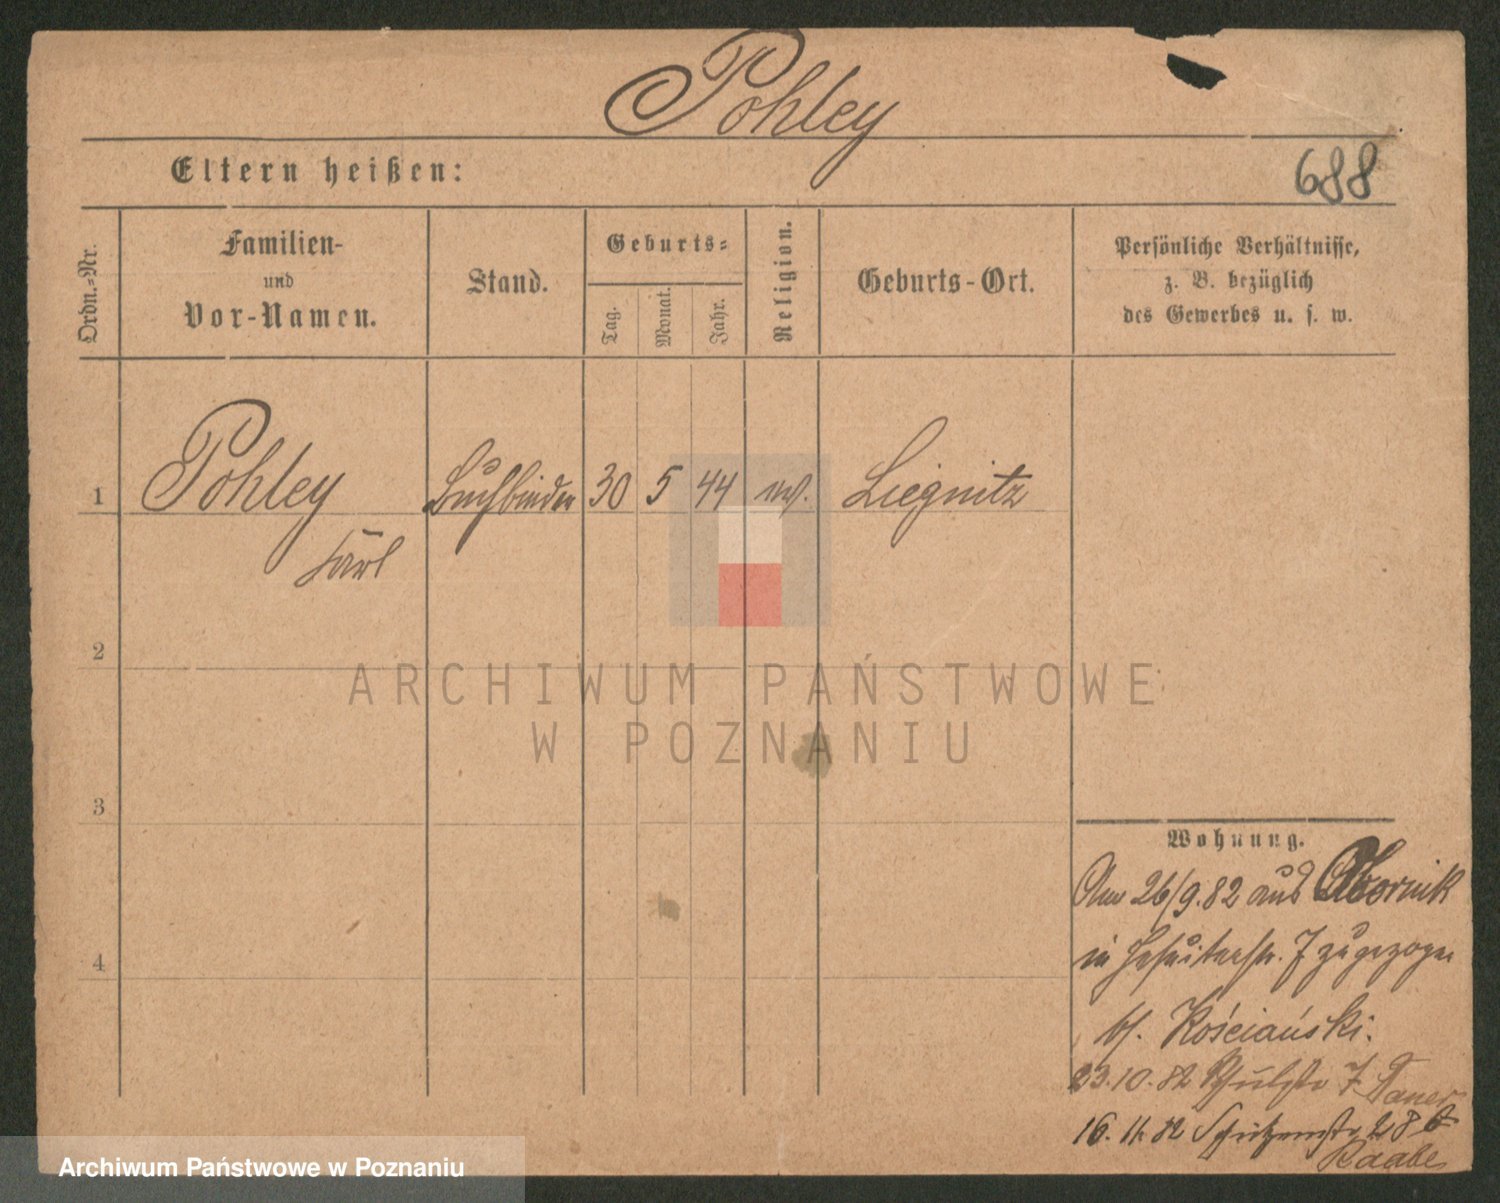 Pohley
Eltern heißen:
688
Ordn.-Nr.
Familien-
und
Vor-Namen.
Stand.
Geburts-
Tag.
Monat.
Jahr.
Religion.
Geburts-Ort.
Persönliche Verhältnisse,
z. B. bezüglich
des Gewerbes u. s. w.
1
Pohley
Karl
Buchbinder
30
5
44
Liegnitz
2
ARCHIWUM PAŃSTWOWE
W POZNANIU
3
4
Wohnung.
Am 26/9.82 aus Obornik
in Jesuitenstr. 7 zugezogen
bf. Kościański.
23.10.82 Schulstr 7
16.11.82 Schützenstr 28
Raabe
Archiwum Państwowe w Poznaniu